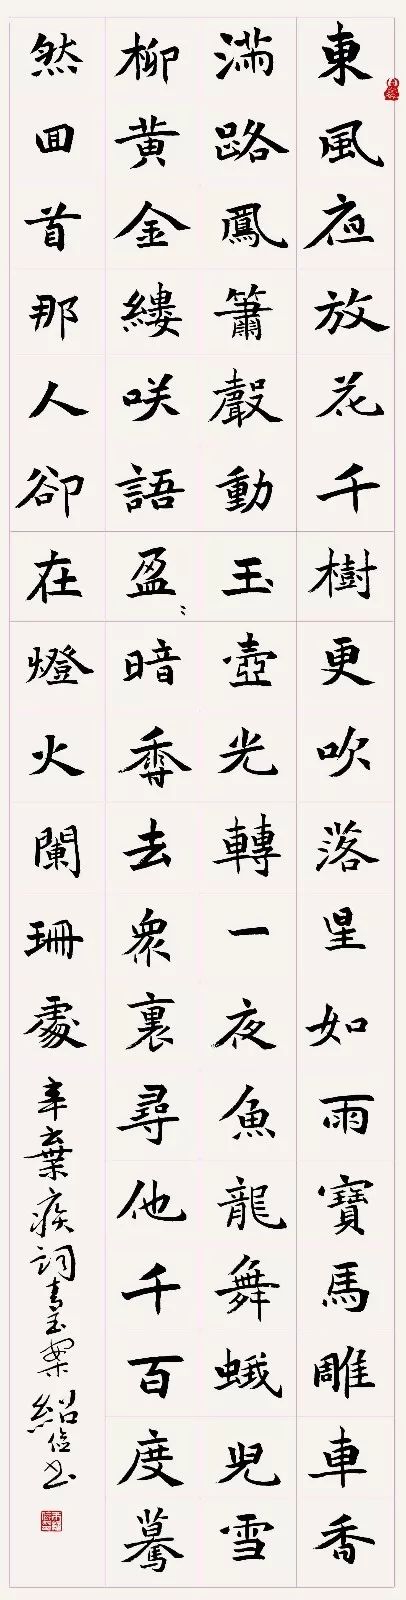 東風夜放花千樹更吹落星如雨寶馬雕車香
滿路鳳簫聲動玉壺光轉一夜魚龍舞蛾兒雪
柳黃金縷咲語盈〻暗香去衆裏尋他千百度驀
然囬首那人卻在燈火闌珊處
辛棄疾詞青玉案紹信书